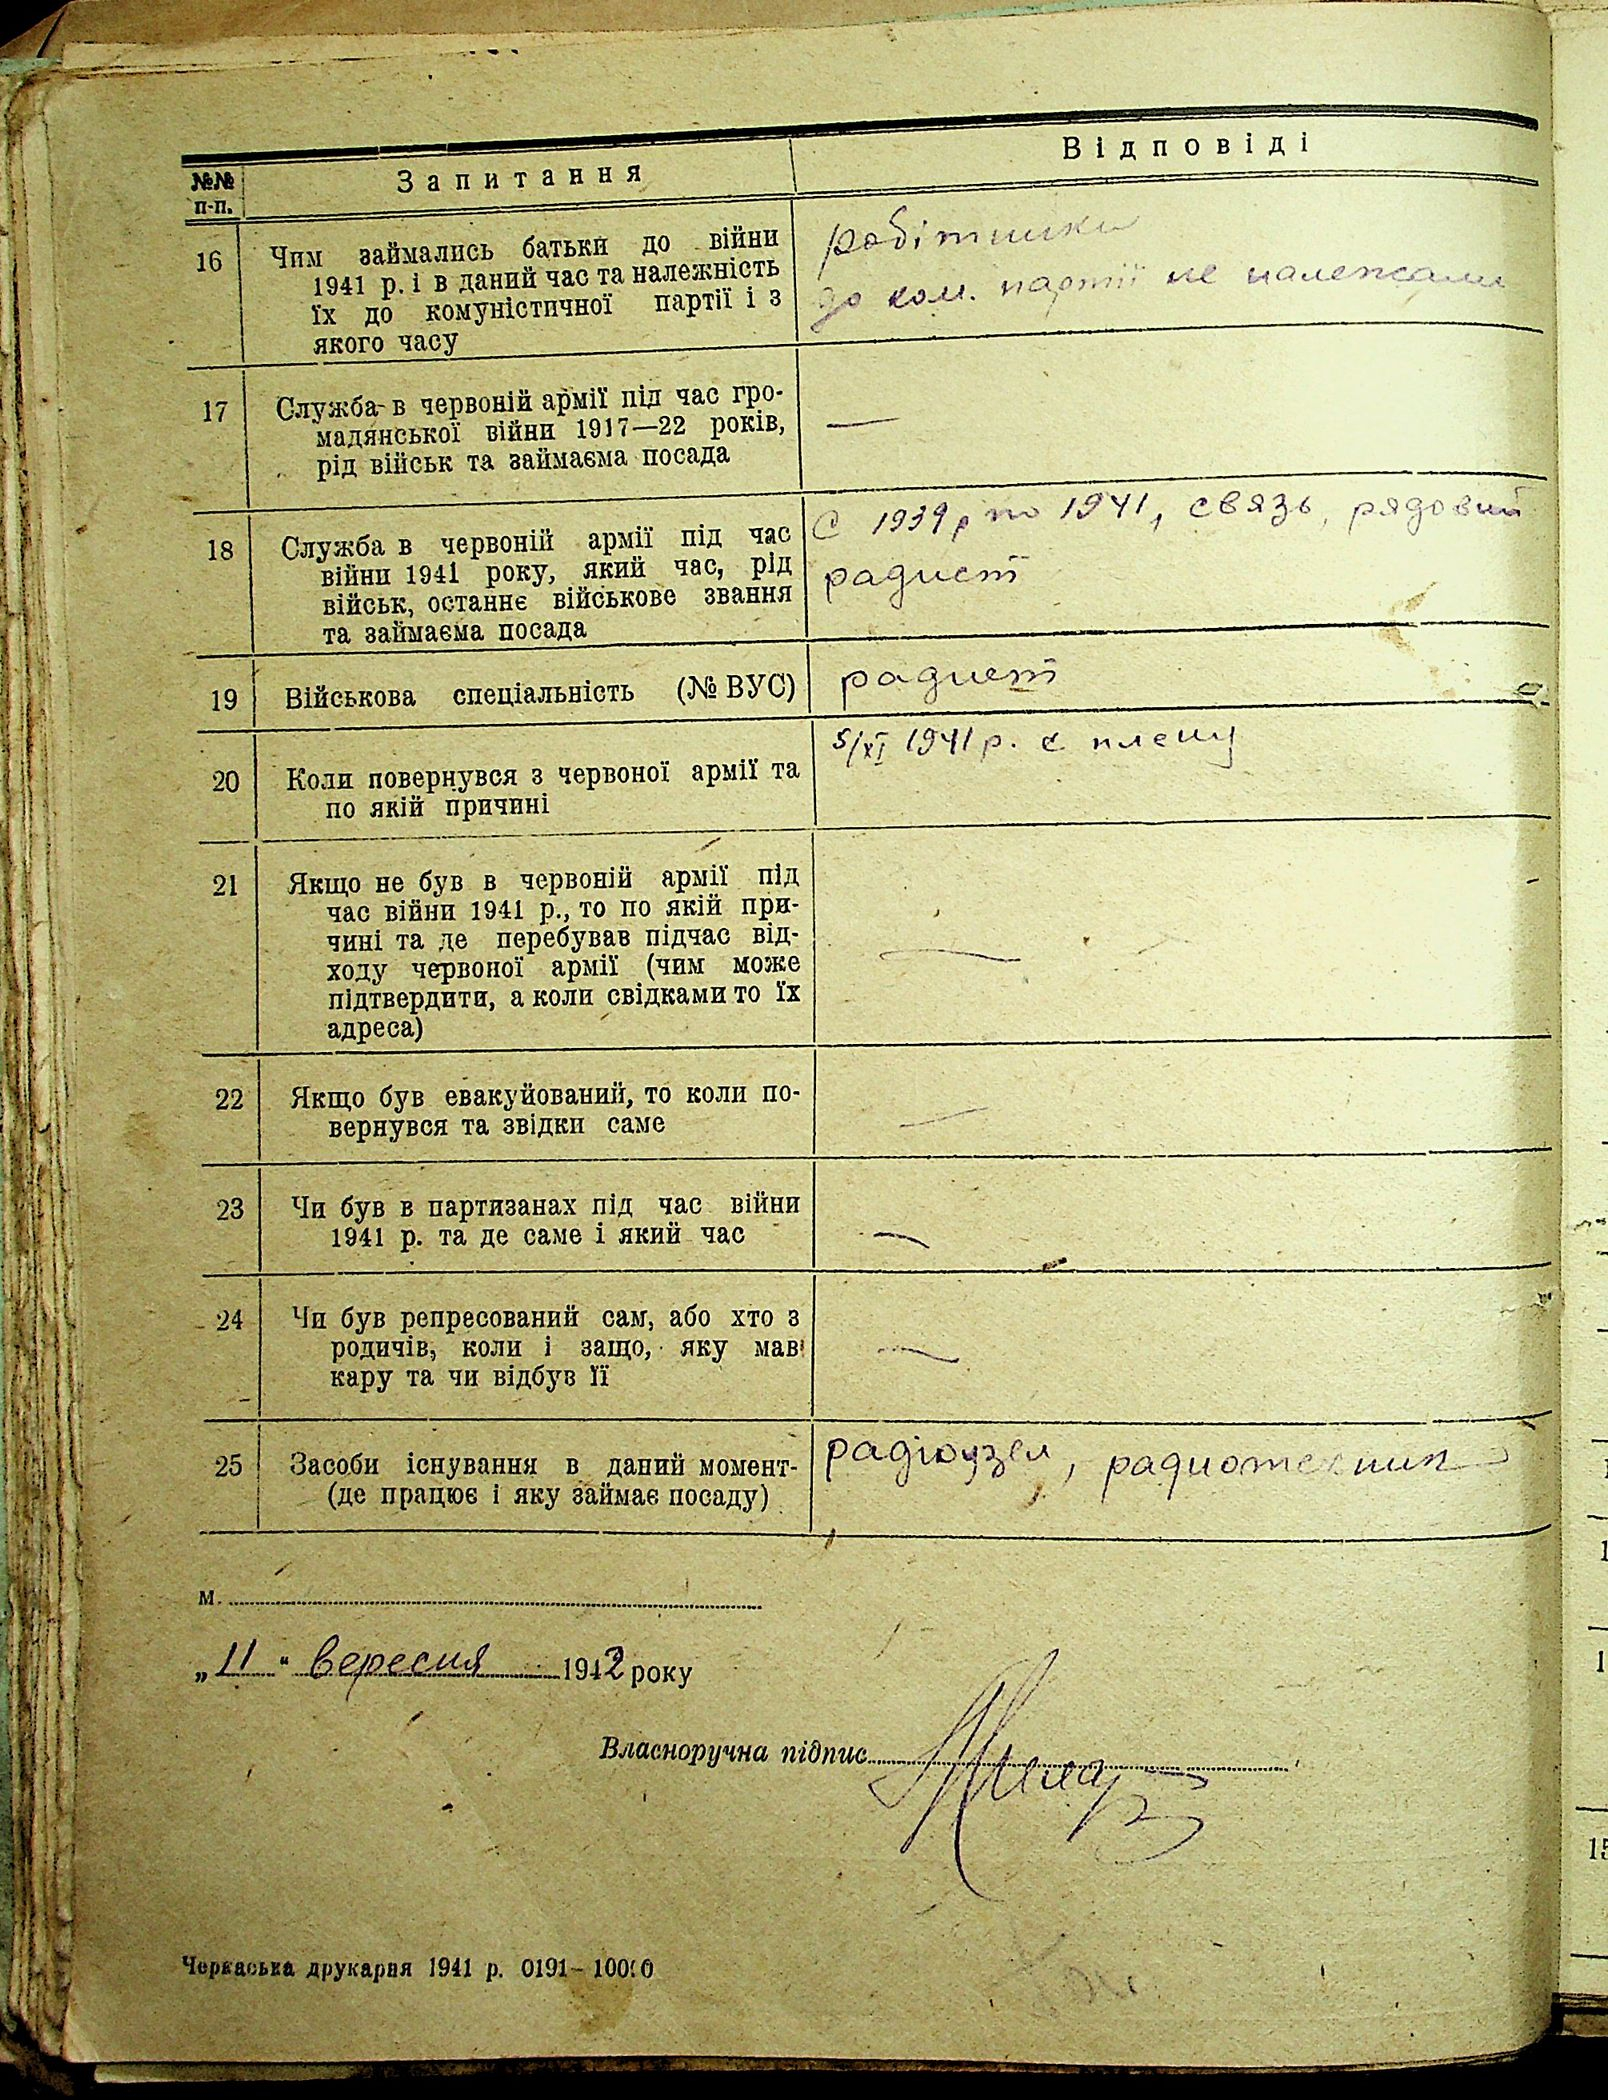 №№ п-п. Запитання Відповіді
16 Чим займались батьки до війни робітники
1941 р. і в даний час та належність до ком. партії не належали
їх до комуністичної партії і з
якого часу
17 Служба в червоній армії під час гро- —
мадянської війни 1917—22 років,
рід військ та займаєма посада
18 Служба в червоній армії під час С 1939 р по 1941, связь, рядовий
війни 1941 року, який час, рід радист
військ, останнє військове звання
та займаєма посада
19 Військова спеціальність (№ ВУС) радист
20 Коли повернувся з червоної армії та 5/XI 1941 р. с плену
по якій причині
21 Якщо не був в червоній армії під —
час війни 1941 р., то по якій при-
чині та де перебував підчас від-
ходу червоної армії (чим може
підтвердити, а коли свідками то їх
адреса)
22 Якщо був евакуйований, то коли по- —
вернувся та звідки саме
23 Чи був в партизанах під час війни —
1941 р. та де саме і який час
24 Чи був репресований сам, або хто з —
родичів, коли і защо, яку мав
кару та чи відбув її
25 Засоби існування в даний момент- радіоузел, радиотехник
(де працює і яку займає посаду)
м.
„11" вересня 1942 року
Власноручна підпис
Черкаська друкарня 1941 р. 0191—10000
15